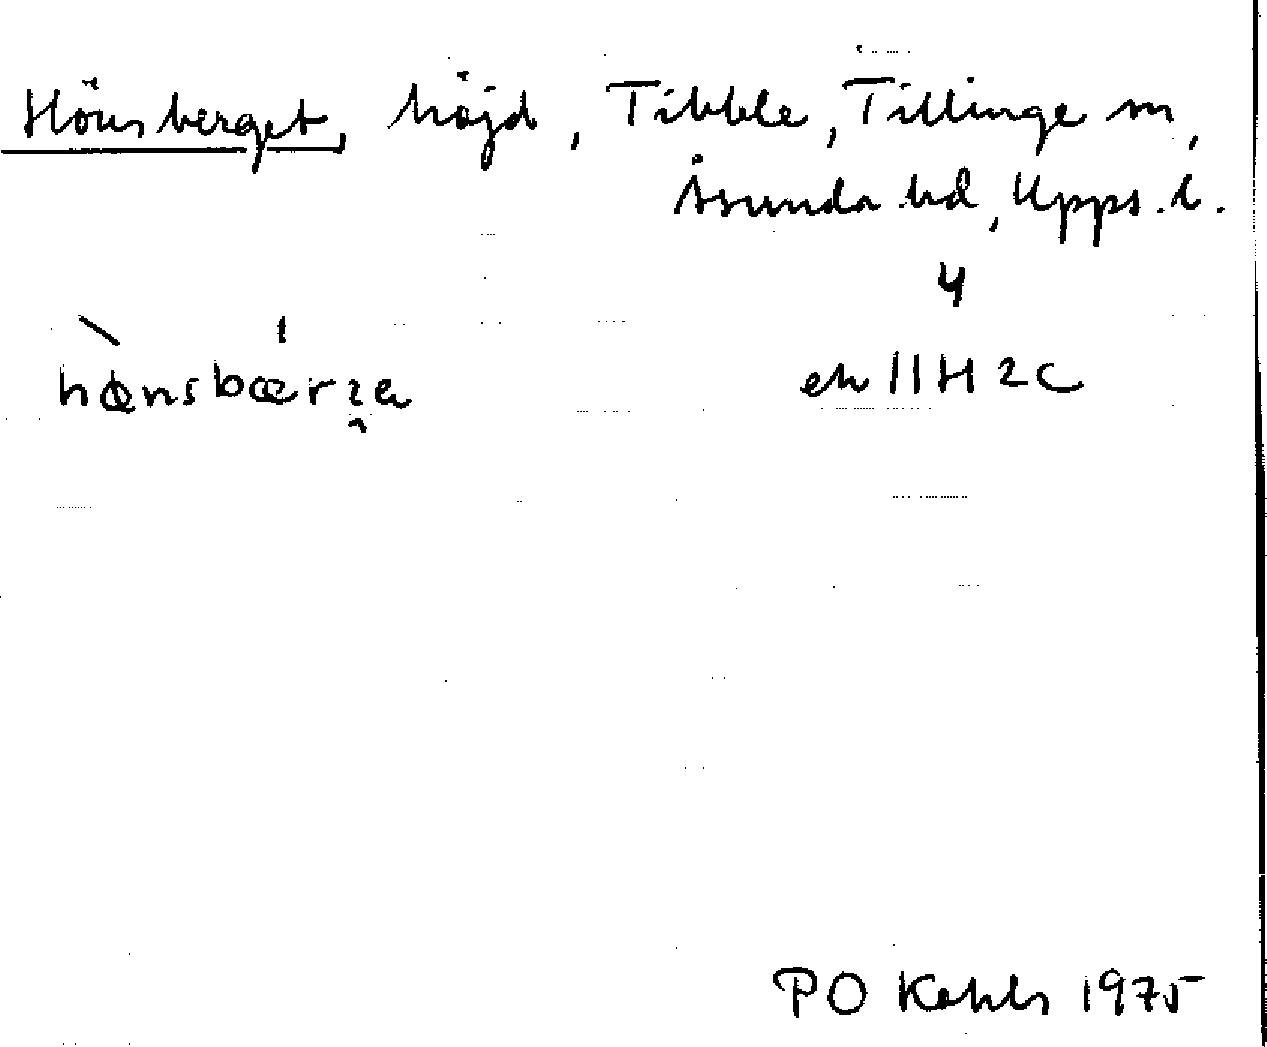 Hönsberget, höjd, Tibble, Tillinge sn,
Åsunda hd, Upps. l.
4
ek 11H 2c
PO 1975